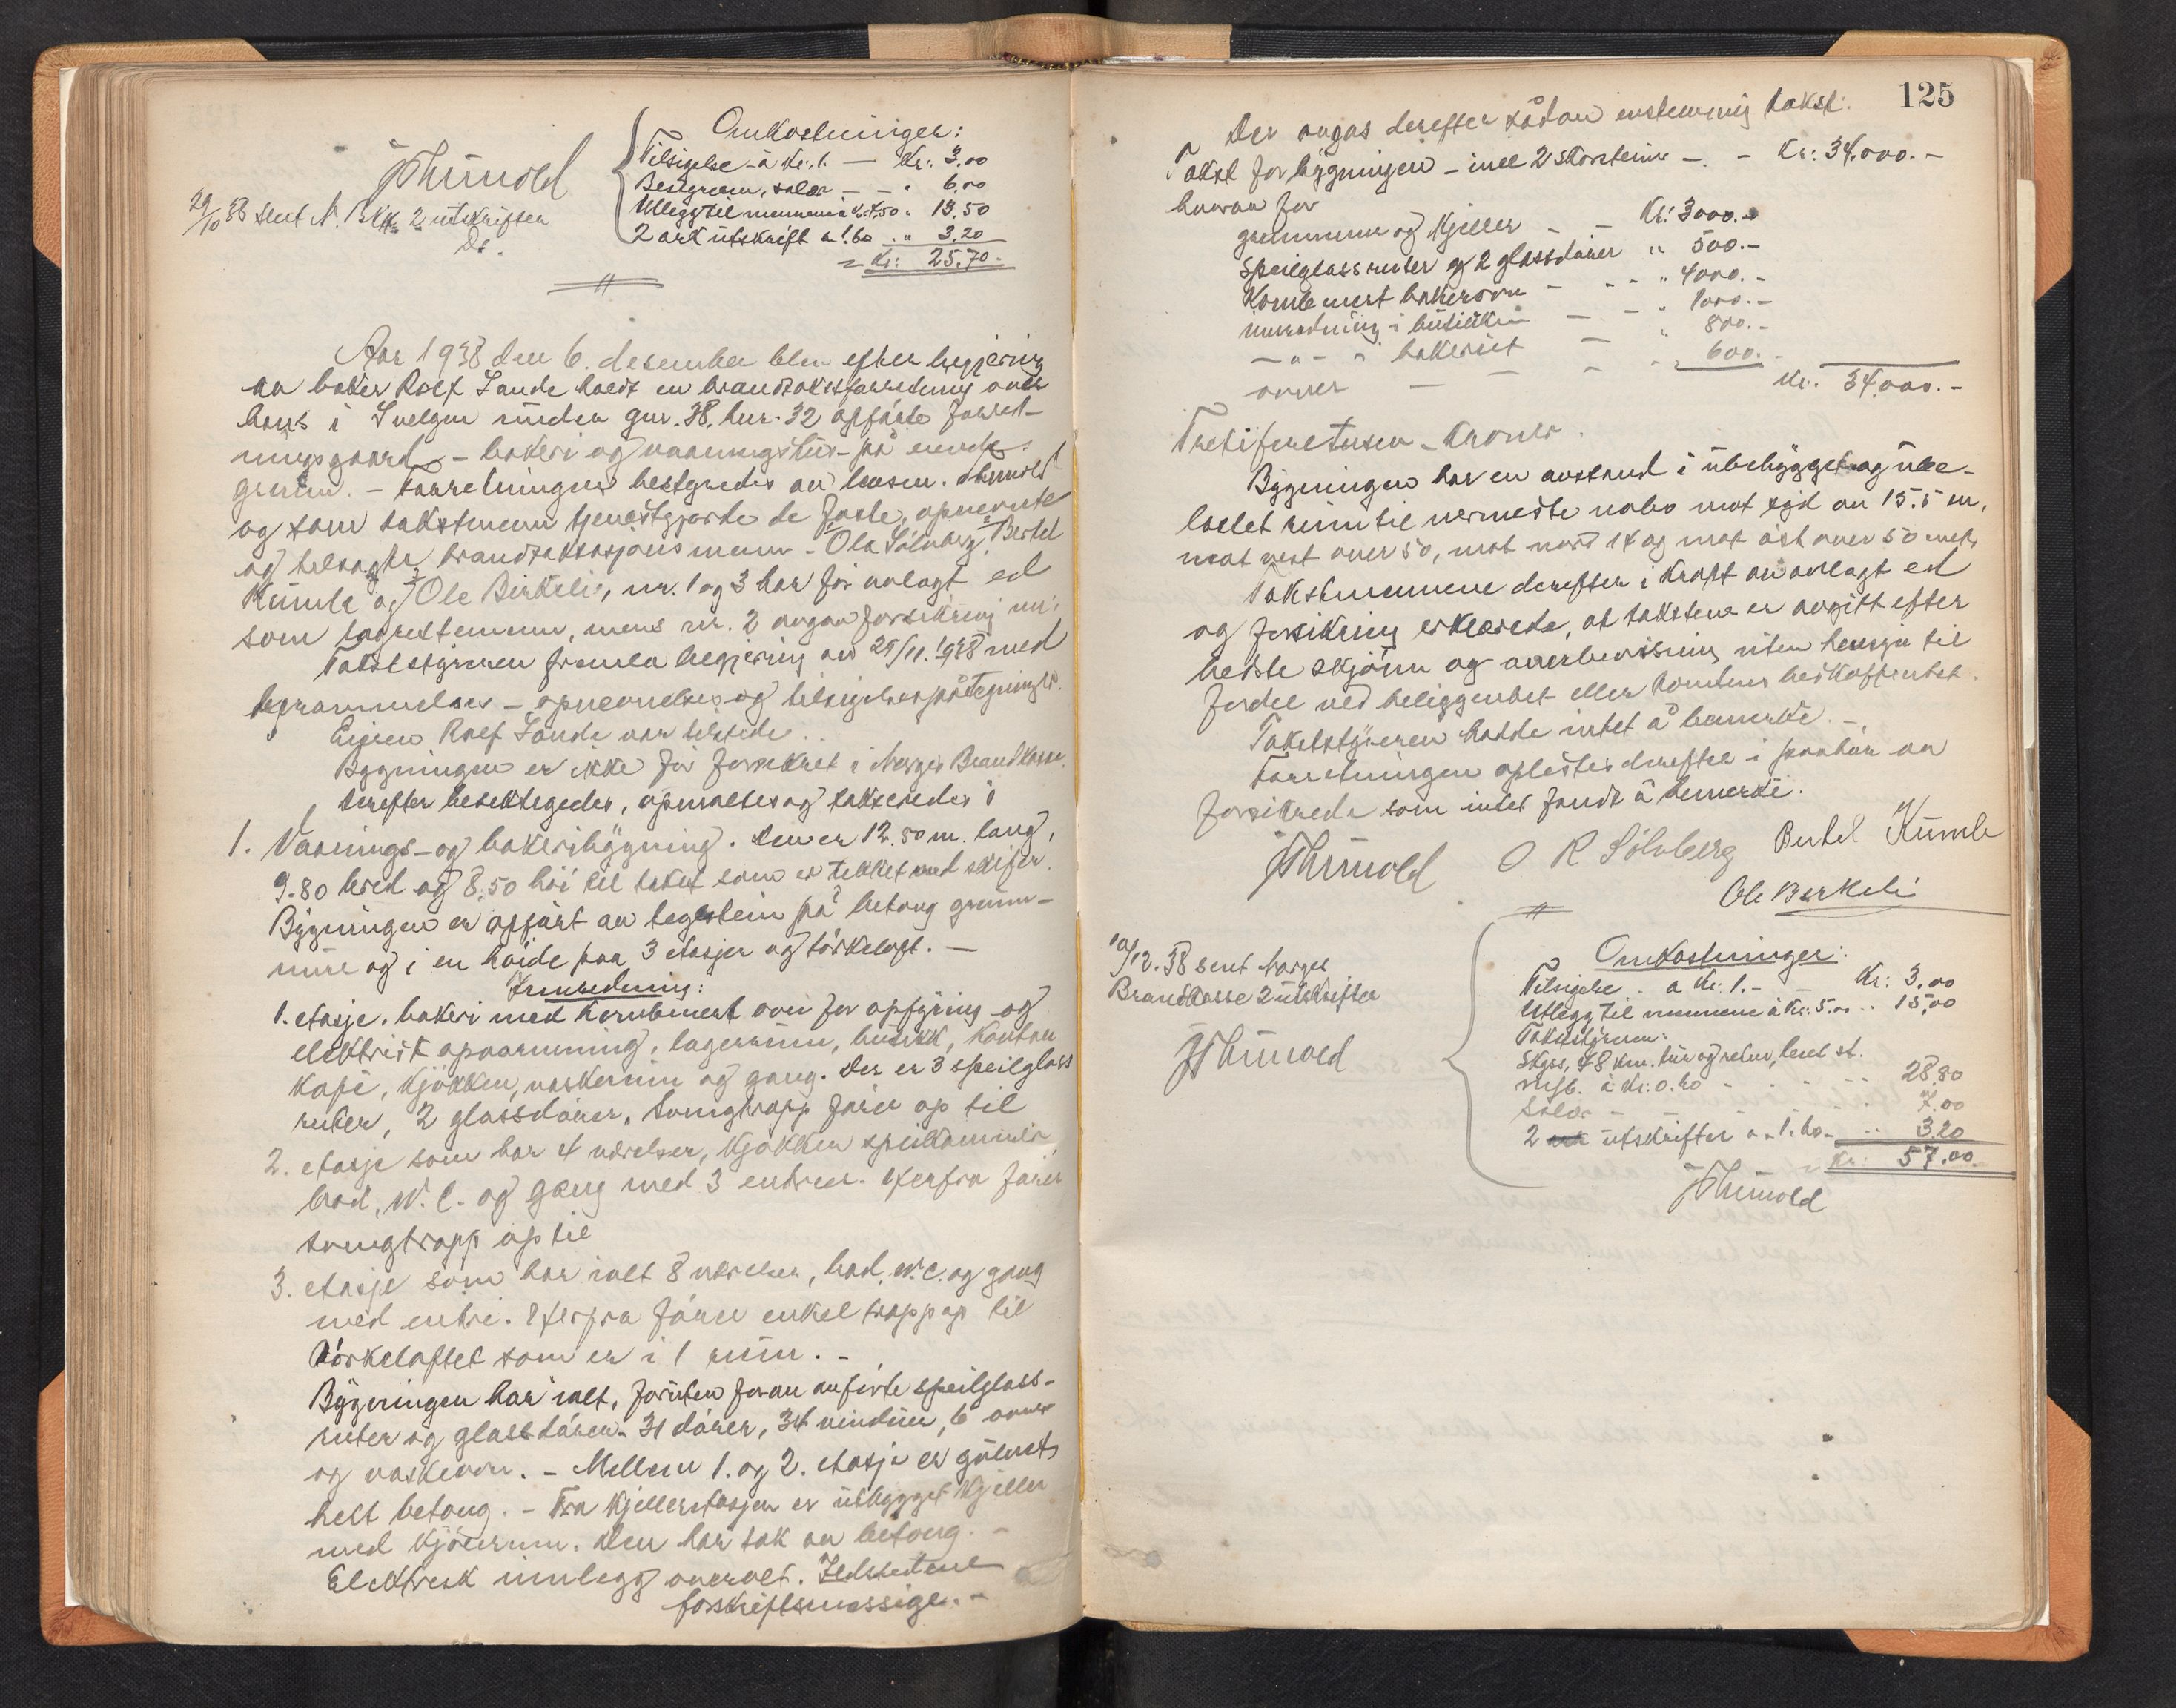 Omkostninger:
Tilsigelse à Kr. 1. — Kr. 3.00
Bestyreren, salær — — " 6.00
Utlegg til mennene à Kr. 4.50 " 13.50
2 ark utskrift à 1.60 .. " 3.20
= Kr: 25.70.
JThunold
29/10 38 sent N. Bkk. 2 utskrifter
Ds.
Aar 1938 den 6. desember blev efter begjæring
av baker Rolf Sande holdt en brandtakstforretning over
hans i Svelgen under gnr. 38, bnr. 32 opførte forret-
ningsgaard - bakeri og vaaningshus - på eiende
grunn. - Forretningen bestyredes av lensm. Thunold
og som takstmenn tjenestgjorde de faste, opnevnte
og tilsagte brandtakstasjonsmenn - Ola Sølvberg, 2 Bertel
Kumle og 3 Ole Birkeli, nr. 1 og 3 har før avlagt ed
som lagrettemenn, mens nr. 2 avgav forsikring nu.
Takststyreren fremla begjæring av 25/11. 1938 med
berammelses - opnevnelses og tilsigelsespåtegninger.
Eieren Rolf Sande var tilstede.
Bygningen er ikke før forsikret i Norges Brandkasse.
Derefter besiktigedes, opmaltes og takseredes:
1. Vaanings- og bakeribygning. Den er 12.50 m. lang,
9.80 bred og 8.50 høi til taket som er tekket med skifer.
Bygningen er opført av teglstein på betong grunn-
mure og i en høide paa 3 etasjer og tørkeloft. —
Innredning:
1. etasje. bakeri med kombinert ovn for opfyring og
elektrisk opvarmning, lagerrum, butikk, kontor
kafe, kjøkken, vaskerum og gang. Der er 3 speilglass
ruter, 2 glassdører. Svingtrapp fører op til
2. etasje som har 4 værelser, kjøkken spiskammer
bad, W.C. og gang med 3 entreer. Herfra fører
svingtrapp op til
3. etasje som har ialt 8 værelser, bad, W.C. og gang
med entre. Herfra fører enkel trapp op til
tørkeloftet som er i 1 rum. -
Bygningen har ialt, foruten foran anførte speilglass-
ruter og glassdører - 31 dører, 34 vinduer, 6 ovner
og vaskeovn. - Mellem 1. og 2. etasje er gulvet
helt betong. - Fra kjelleretasjen er utbygget kjeller
med kjølerum. Den har tak av betong. -
Elektrisk innlegg overalt. Ildstedene
forskriftsmessige. -
125
Der avgas derefter sådan enstemmig takst:
Takst for bygningen - inkl 2 skorsteiner - - Kr: 34.000.-
hvorav for
grunnmur og kjeller - - Kr: 3000.-
Speilglassruter og 2 glassdører " 500.-
Kombinert bakerovn - - - " 4000.-
innredning i butikken - - " 1000.-
—"— " bakeriet — " 800.-
ovner — — — " 600.-
Kr. 34.000.-
Trettifiretusen - kroner.
Bygningen har en avstand i ubebygget og ube-
lastet rum til nermeste nabo mot syd av 15.5 m,
mot vest over 50, mot nord 14 og mot øst over 50 meter
Takstmennene derefter i kraft av avlagt ed
og forsikring erklærede, at taksten er avgitt efter
bedste skjønn og overbevisning uten hensyn til
fordel ved beliggenhet eller tomtens beskaffenhet.
Takststyreren hadde intet å bemerke. -
Forretningen oplestes derefter i påhør av
forsikrede som intet fandt å bemerke.
JThunold O R Sølvberg Bertel Kumle
Ole Birkeli
10/12.38 sent Norges
Brandkasse 2 utskrifter
JThunold
Omkostninger:
Tilsigelse . à Kr. 1.- - Kr: 3.00
Utlegg til mennene à Kr. 5.00 .. 15,00
Takststyreren:
Skyss, 48 km. tur og retur, bent st.
à Kr. 0.60 - - - .. 28.80
Salær - - - .. 7.00
2 utskrifter à 1.60 - .. 3.20
= Kr: 57.00.
JThunold